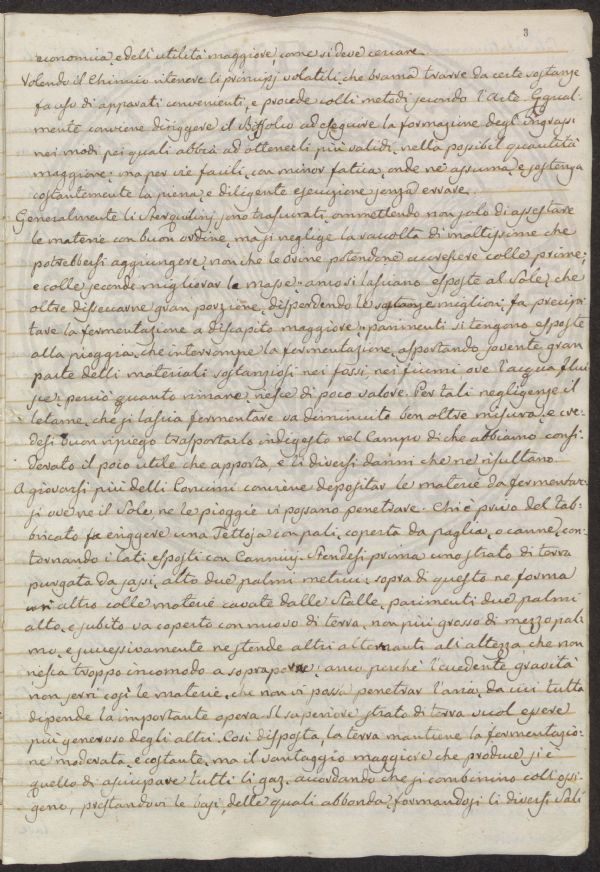 3
economica, e dell'utilità maggiore, come si deve cercare.
Volendo il Chimico ritenere li principj volatili, che brama trarre da certe sostanze
fa uso di apparati convenienti, e procede colli metodi secondo l'Arte. Egual-
mente conviene diriggere il Biffolco ad eseguire la formazione degl'Ingrassi
nei modi pei quali abbia ad ottenerli più validi, nella possibil quantità
maggiore; ma per vie facili, con minor fatica, onde ne assuma, e sostenga
costantemente la piena, e diligente esecuzione senza errare.
Generalmente li Sterquilinj sono trascurati, ommettendo non solo di assestare
le materie con buon ordine, ma si neglige la raccolta di moltissime che
potrebbersi aggiungere, non che le Orine potendone accrescere colle prime;
e colle seconde migliorar le masse: anco si lasciano esposte al Sole, che
oltre disseccarne gran porzione, disperdendo le sostanze migliori, fa precipi-
tare la fermentazione a discapito maggiore: parimenti si tengono esposte
alla pioggia, che interrompe la fermentazione, asportando sovente gran
parte delli materiali sostanziosi nei fossi, nei fiumi ove l'acqua flui
sce, perciò quanto rimane, riesce di poco valore. Per tali negligenze il
letame, che si lascia fermentare va diminuito ben oltre misura, e cre-
desi buon ripiego trasportarlo indigesto nel Campo di che abbiamo consi-
derato il poco utile che apporta, e li diversi danni che ne risultano.
A giovarsi più delli Concimi conviene depositar le materie da fermentar-
si ove ne il Sole, ne le pioggie vi possano penetrare. Chi è privo del fab-
bricato fa eriggere una Tettoja con pali, coperta da paglia, o canne, con-
tornando i lati esposti con Cannicj. Stendesi prima uno strato di terra
purgata da sassi, alto due palmi metrici, sopra di questo ne forma
un altro colle materie cavate dalle Stalle, parimenti due palmi
alto, e subito va coperto con nuovo di terra, non più grosso di mezzo pal-
mo, e successivamente ne stende altri alternanti all'altezza, che non
riesca troppo incomodo a sovrapore; anco perchè l'eccedente gravità
non serri così le materie, che non vi possa penetrar l'aria, da cui tutta
dipende la importante opera. Il superiore strato di terra vuol essere
più generoso degli altri. Così disposta, la terra mantiene la fermentazio-
ne moderata, e costante, ma il vantaggio maggiore che produce si è
quello di assicurare tutti li gaz, accordando che si combinino coll'ossi-
geno, prestandovi le basi, delle quali abbonda, formandosi li diversi Sali